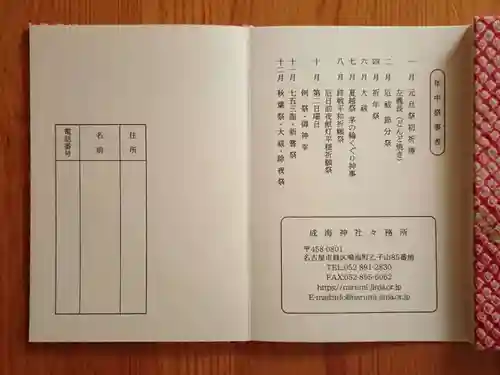 年中祭事表
一月 元旦祭初祈祷
左義長(どんど焼き)
二月 厄祓 節分祭
四月 祈年祭
六月 大祓
七月 夏越祭 茅の輪くぐり神事
八月 終戦平和祈願祭
十月 第二日曜日
例祭・御神幸
十一月 七五三詣・新嘗祭
十二月 秋葉祭・大祓・除夜祭
成海神社々務所
〒458-0801
名古屋市緑区鳴海町乙子山85番地
TEL:052-891-2830
FAX:052-895-6062
https://narumi-jinja.or.jp
E-mail:info@narumi-jinja.or.jp
住所
名前
電話番号